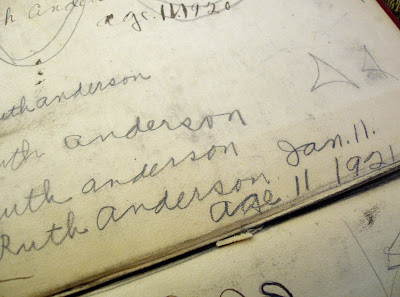 th Anders
age. 11. 1920
uthanderson
uth anderson
uth anderson Jan. 11.
Ruth Anderson age. 11 1921